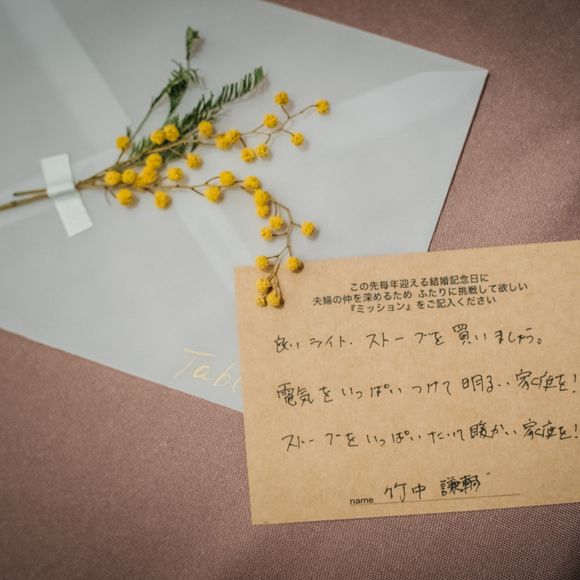 Tabl
この先毎年迎える結婚記念日に
夫婦の仲を深めるため ふたりに挑戦して欲しい
『ミッション』をご記入ください
良いライト、ストーブを買いましょう。
電気をいっぱいつけて明るい家庭を!
ストーブをいっぱいたいて暖かい家庭を!
name 竹中 謙輔